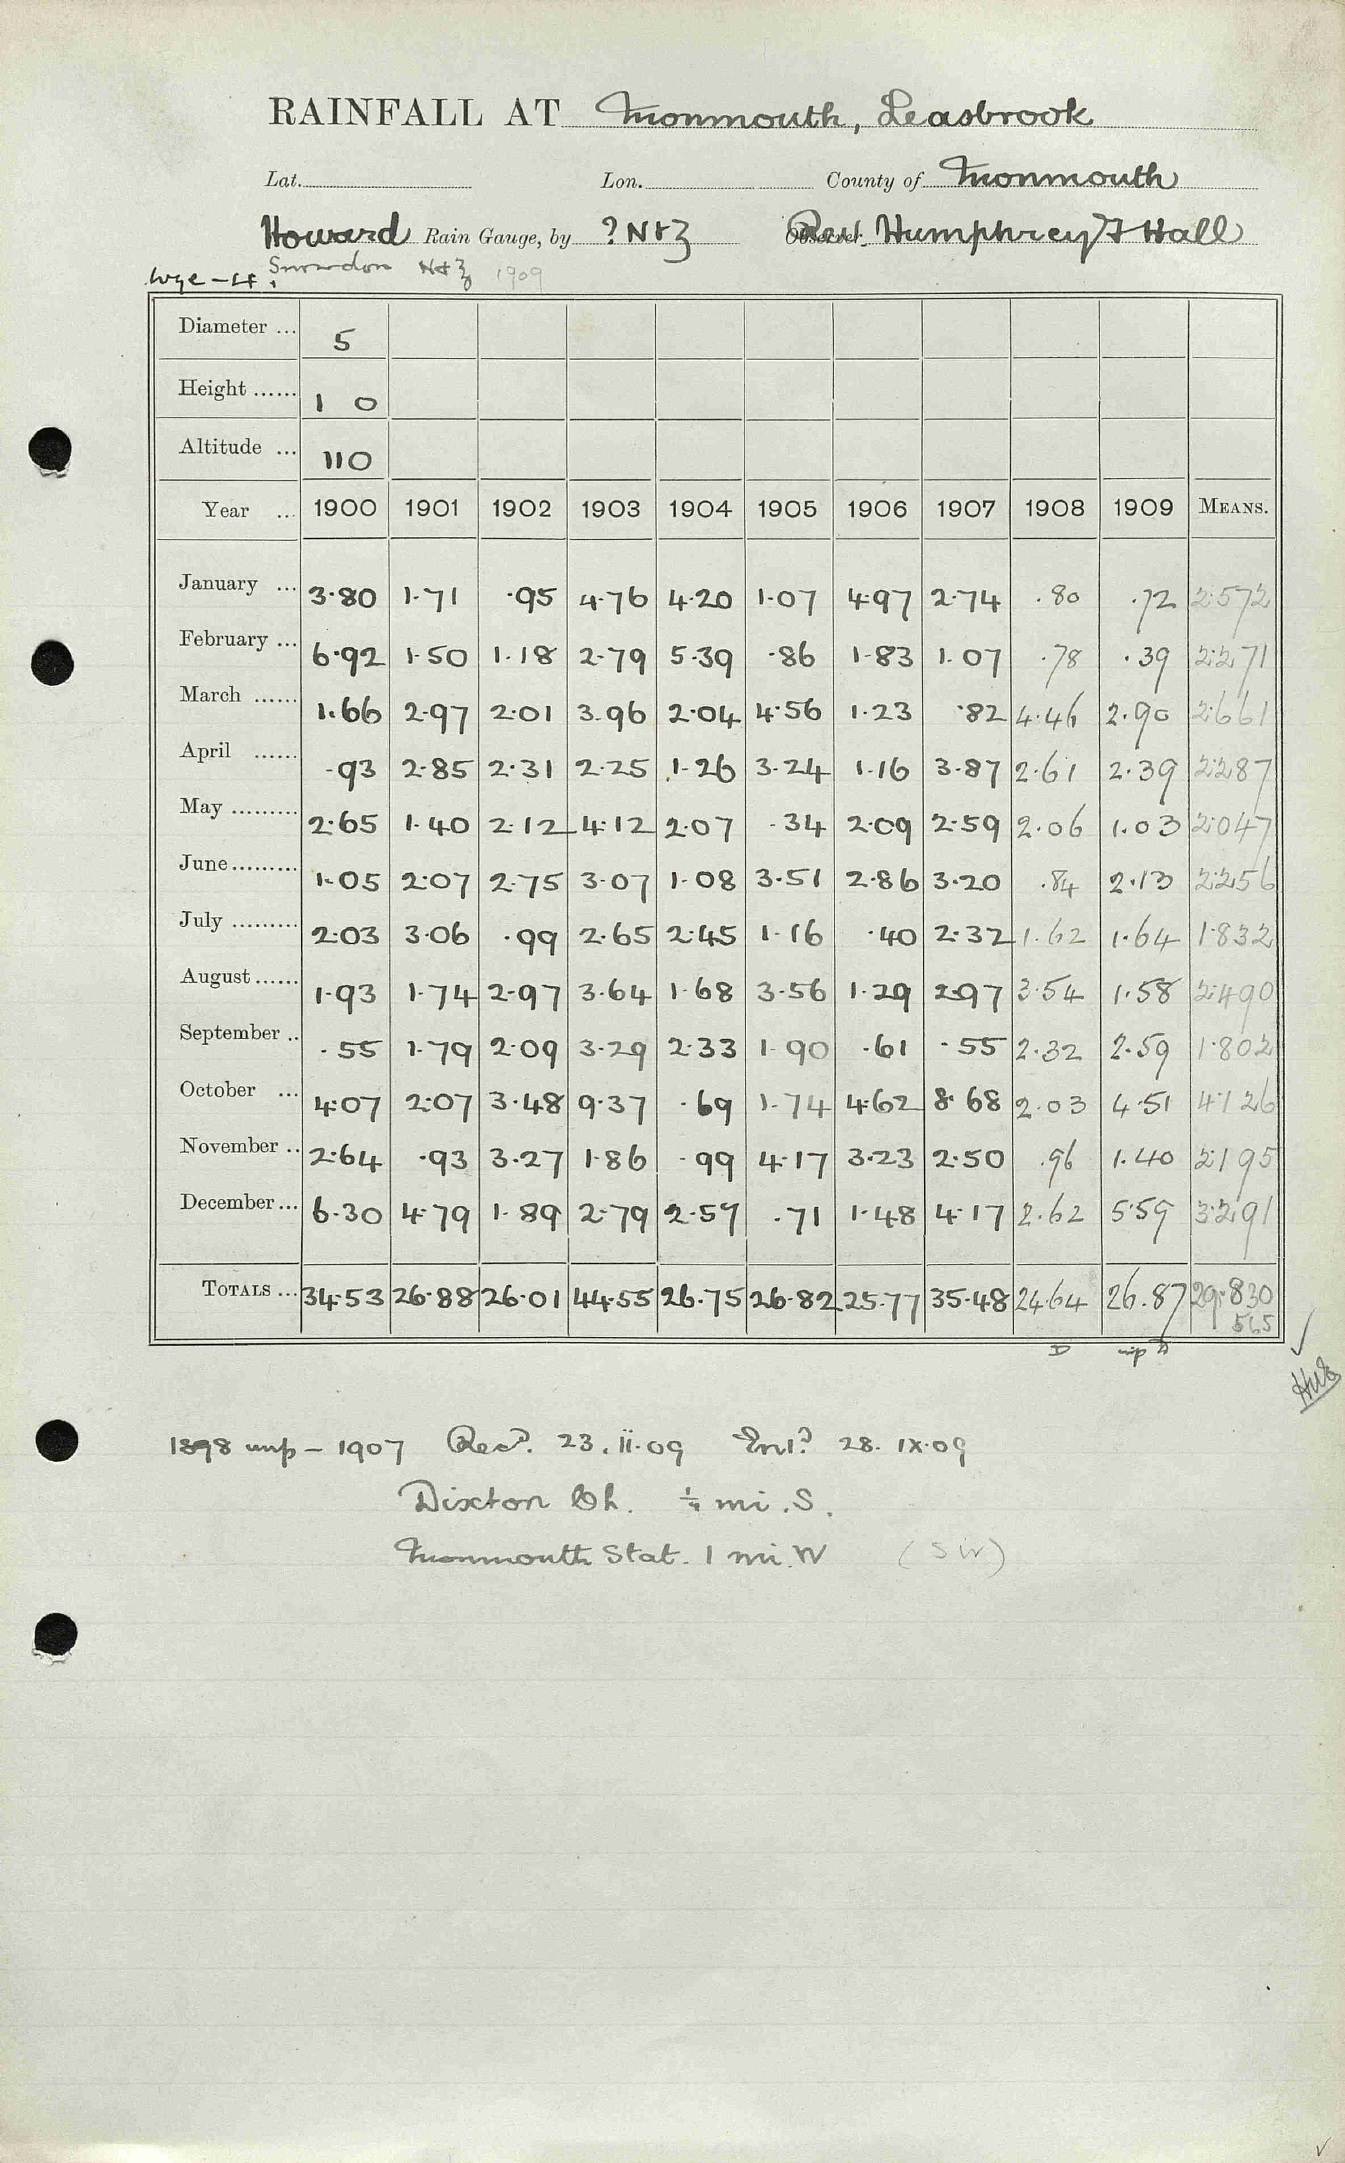 RAINFALL AT Monmouth, Leasbrook
Lat. Lon. County of Monmouth
Howard Rain Gauge, by ? N & Z Observer Rev. Humphrey F Hall
Wye - 4. Snowdon N & Z 1909
Diameter ... 5
Height ...... 1 0
Altitude ... 110
Year ... 1900 1901 1902 1903 1904 1905 1906 1907 1908 1909 MEANS.
January ... 3.80 1.71 .95 4.76 4.20 1.07 4.97 2.74 .80 .72 2.572
February ... 6.92 1.50 1.18 2.79 5.39 .86 1.83 1.07 .78 .39 2.271
March ...... 1.66 2.97 2.01 3.96 2.04 4.56 1.23 .82 4.46 2.90 2.661
April ...... .93 2.85 2.31 2.25 1.26 3.24 1.16 3.87 2.61 2.39 2.287
May ......... 2.65 1.40 2.12 4.12 2.07 .34 2.09 2.59 2.06 1.03 2.047
June ......... 1.05 2.07 2.75 3.07 1.08 3.51 2.86 3.20 .84 2.13 2.256
July ......... 2.03 3.06 .99 2.65 2.45 1.16 .40 2.32 1.62 1.64 1.832
August ...... 1.93 1.74 2.97 3.64 1.68 3.56 1.29 2.97 3.54 1.58 2.490
September .. .55 1.79 2.09 3.29 2.33 1.90 .61 .55 2.32 2.59 1.802
October ... 4.07 2.07 3.48 9.37 .69 1.74 4.62 8.68 2.03 4.51 4.126
November .. 2.64 .93 3.27 1.86 .99 4.17 3.23 2.50 .96 1.40 2.195
December ... 6.30 4.79 1.89 2.79 2.57 .71 1.48 4.17 2.62 5.59 3.291
TOTALS ... 34.53 26.88 26.01 44.55 26.75 26.82 25.77 35.48 24.64 26.87 29.830
565
D
1898 unp - 1907 Recd. 23.II.09 Entd 28.IX.09
Dixton Ch. ¼ mi. S.
Monmouth Stat. 1 mi. W (SW)